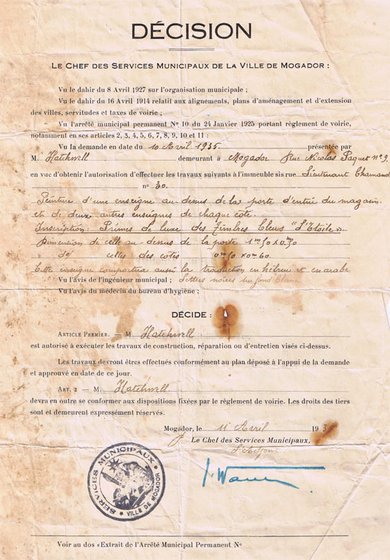 DÉCISION
LE CHEF DES SERVICES MUNICIPAUX DE LA VILLE DE MOGADOR :
Vu le dahir du 8 Avril 1927 sur l'organisation municipale ;
Vu le dahir du 16 Avril 1914 relatif aux alignements, plans d'aménagement et d'extension
des villes, servitudes et taxes de voirie ;
Vu l'arrêté municipal permanent No 10 du 24 Janvier 1925 portant règlement de voirie,
notamment en ses articles 2, 3, 4, 5, 6, 7, 8, 9, 10 et 11 :
Vu la demande en date du 10 Avril 1935 présentée par
M. Hatchwell demeurant à Mogador Rue Nicolas Paquet No 9
en vue d'obtenir l'autorisation d'effectuer les travaux suivants à l'immeuble sis rue Lieutenant Chamand
no 30.
Peinture d'une enseigne au dessus de la porte d'entrée du magasin
et de deux autres enseignes de chaque côté.
Inscription: Primes de luxe des Timbres Bleus "L'Etoile"
Dimension de celle au dessus de la porte 1m50 x 0.70
do de celles des côtés 0m50 x 0m60
Cette enseigne comportera aussi la traduction en hébreu et en arabe
Vu l'avis de l'ingénieur municipal ; Lettres noires sur fond blanc
Vu l'avis du médecin du bureau d'hygiène ;
DÉCIDE :
ARTICLE PREMIER. — M. Hatchwell
est autorisé à exécuter les travaux de construction, réparation ou d'entretien visés ci-dessus.
Les travaux devront être effectués conformément au plan déposé à l'appui de la demande
et approuvé en date de ce jour.
ART. 2 — M. Hatchwell
devra en outre se conformer aux dispositions fixées par le règlement de voirie. Les droits des tiers
sont et demeurent expressément réservés.
Mogador, le 11 Avril 193
Le Chef des Services Municipaux,
SERVICES MUNICIPAUX
VILLE DE MOGADOR
Voir au dos «Extrait de l'Arrêté Municipal Permanent No